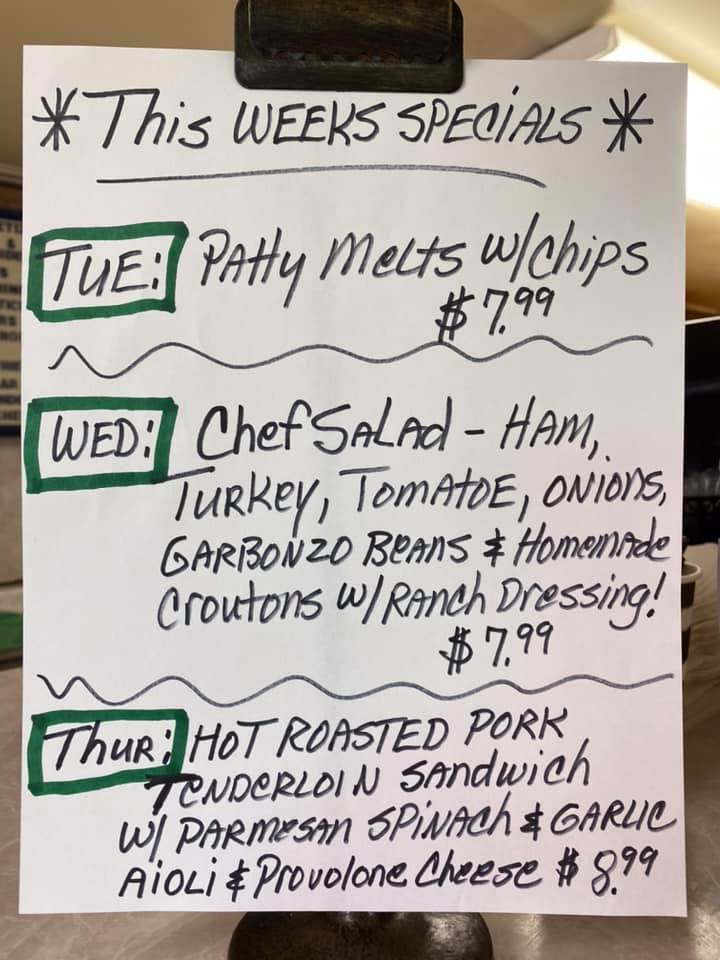 * This WEEKS SPECIALS *
TUE: Patty Melts w/chips
$7.99
WED: Chef Salad - HAM,
Turkey, TomAtOE, ONiONS,
GARBONZO BEANS & Homemade
Croutons w/RANCH Dressing!
$7.99
Thur: HOT ROASTED PORK
TENDERLOIN SANDWICH
W/ PARMESAN SPINACH & GARLIC
AiOLi & Provolone Cheese $8.99